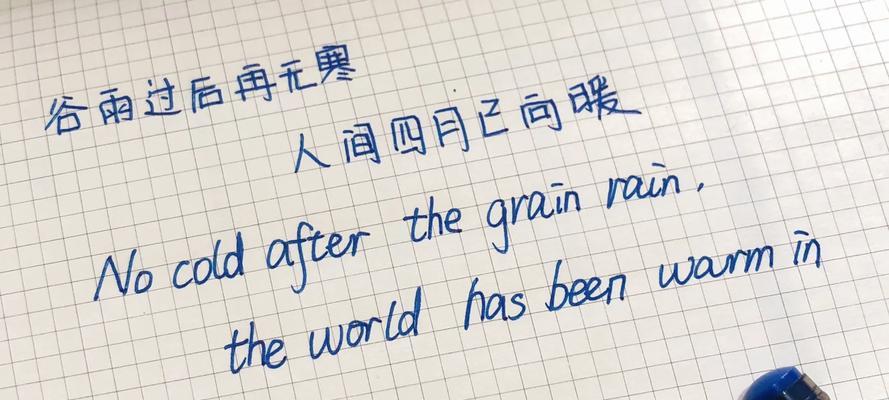 谷雨过后再无寒
人间四月已向暖
No cold after the grain rain.
the world has been warm in